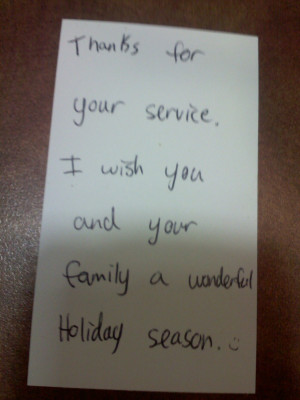 Thanks for
your service.
I wish you
and your
family a wonderful
Holiday season. :)